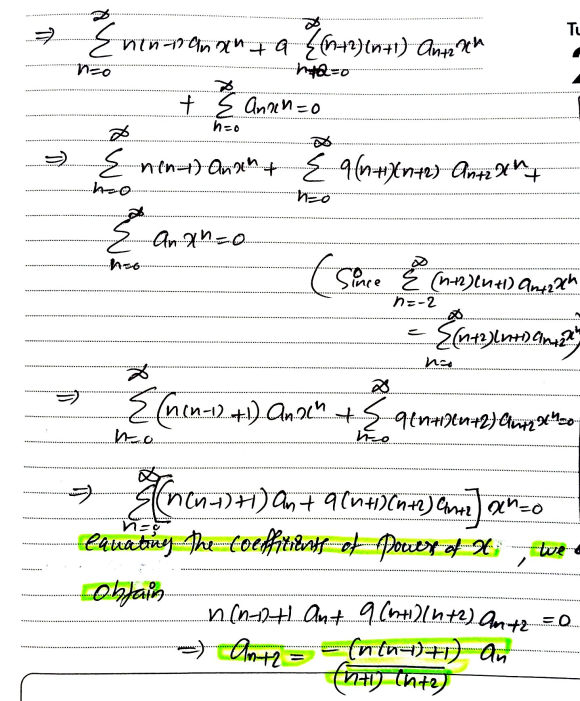 ⇒ ∞∑n=0 n(n-1) an xⁿ + 9 ∞∑n+2=0 (n+2)(n+1) an+2 xⁿ
+ ∞∑n=0 an xⁿ = 0
⇒ ∞∑n=0 n(n-1) an xⁿ + ∞∑n=0 9(n+1)(n+2) an+2 xⁿ +
∞∑n=0 an xⁿ = 0
(Since ∞∑n=-2 (n+2)(n+1) an+2 xⁿ
= ∞∑n=0 (n+2)(n+1) an+2 xⁿ)
⇒ ∞∑n=0 (n(n-1)+1) an xⁿ + ∞∑n=0 9(n+1)(n+2) an+2 xⁿ = 0
⇒ ∞∑n=0 [(n(n-1)+1) an + 9(n+1)(n+2) an+2] xⁿ = 0
equating the coefficients of power of x, we
obtain
n(n-1)+1 an + 9(n+1)(n+2) an+2 = 0
⇒ an+2 = -(n(n-1)+1) / (n+1)(n+2) an
Tu